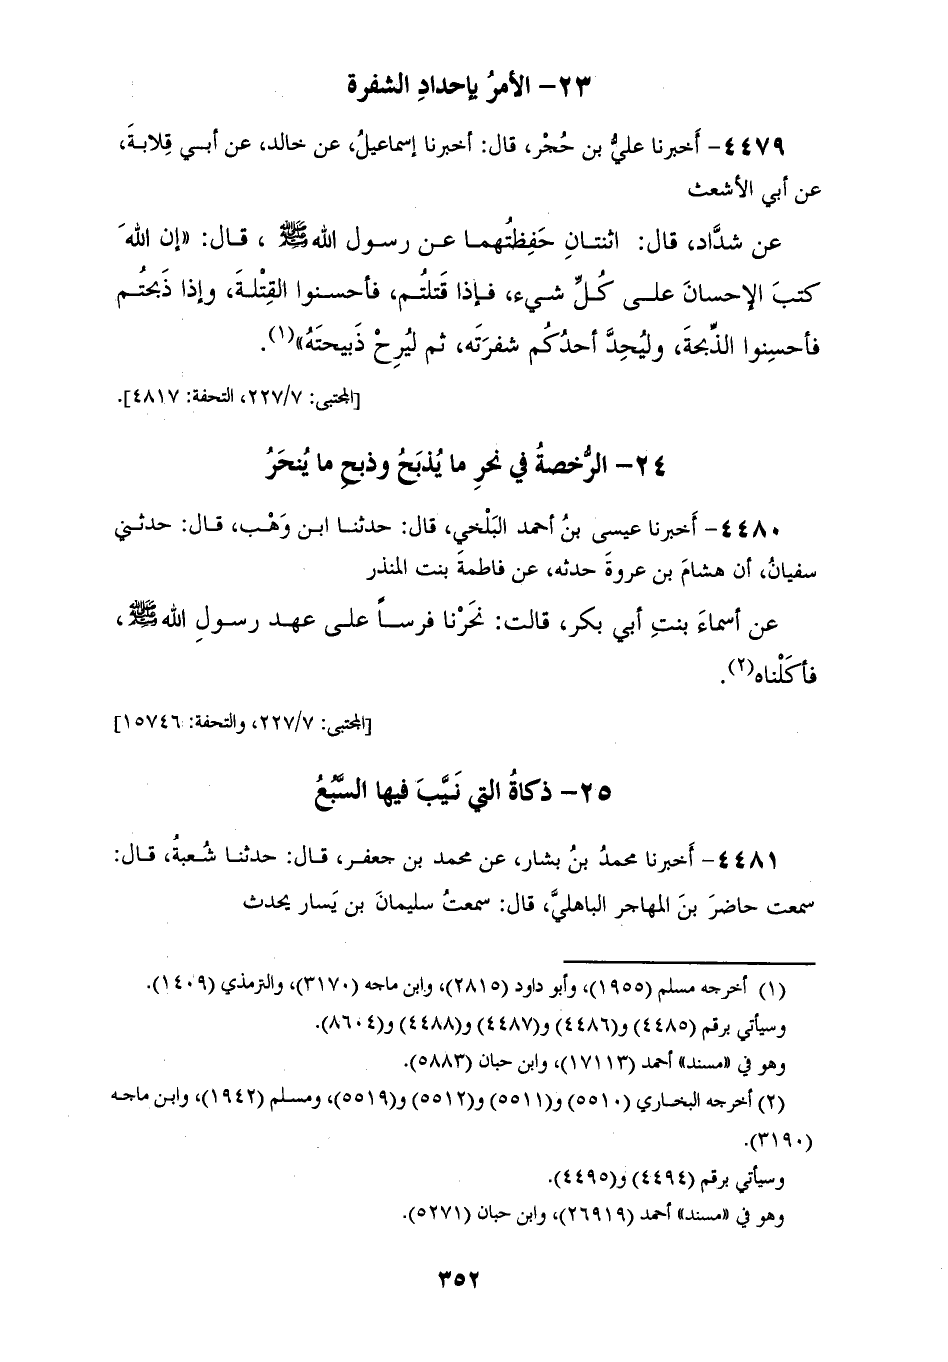 ٢٣- الأمرُ بإحدادِ الشفرة
٤٤٧٩- أَخبرنا عليُّ بن حُجْر، قال: أخبرنا إسماعيلُ، عن خالد، عن أبي قِلابةَ،
عن أبي الأشعث
عن شدَّاد، قال: اثنتانِ حَفِظتُهما عن رسول الله ﷺ ، قال: «إن اللهَ
كتبَ الإحسانَ على كُلِّ شيء، فإذا قَتلتُم، فأحسنوا القِتْلةَ، وإذا ذَبحتُم
فأحسِنوا الذِّبحةَ، وليُحِدَّ أحدُكُم شفرَتَه، ثم ليُرِحْ ذَبيحتَهُ»(١).
[المجتبى: ٢٢٧/٧، التحفة: ٤٨١٧].
٢٤- الرُّخصةُ في نحرِ ما يُذبَحُ وذبحِ ما يُنحَرُ
٤٤٨٠- أَخبرنا عيسى بنُ أحمد البَلْخي، قال: حدثنا ابن وَهْب، قال: حدثني
سفيانُ، أن هشامَ بن عروةَ حدثه، عن فاطمةَ بنت المنذر
عن أسماءَ بنتِ أبي بكر، قالت: نحَرْنا فرساً على عهد رسولِ الله ﷺ،
فأكَلْناه(٢).
[المجتبى: ٢٢٧/٧، والتحفة: ١٥٧٤٦]
٢٥- ذكاةُ التي نَيَّبَ فيها السَّبُعُ
٤٤٨١- أَخبرنا محمدُ بنُ بشار، عن محمد بن جعفر، قال: حدثنا شُعبةُ، قال:
سمعت حاضرَ بنَ المهاجر الباهليَّ، قال: سمعتُ سليمانَ بن يَسار يحدث
(١) أخرجه مسلم (١٩٥٥)، وأبو داود (٢٨١٥)، وابن ماجه (٣١٧٠)، والترمذي (١٤٠٩).
وسيأتي برقم (٤٤٨٥) و(٤٤٨٦) و(٤٤٨٧) و(٤٤٨٨) و(٨٦٠٤).
وهو في «مسند» أحمد (١٧١١٣)، وابن حبان (٥٨٨٣).
(٢) أخرجه البخاري (٥٥١٠) و(٥٥١١) و(٥٥١٢) و(٥٥١٩)، ومسلم (١٩٤٢)، وابن ماجه
(٣١٩٠).
وسيأتي برقم (٤٤٩٤) و(٤٤٩٥).
وهو في «مسند» أحمد (٢٦٩١٩)، وابن حبان (٥٢٧١).
٣٥٢